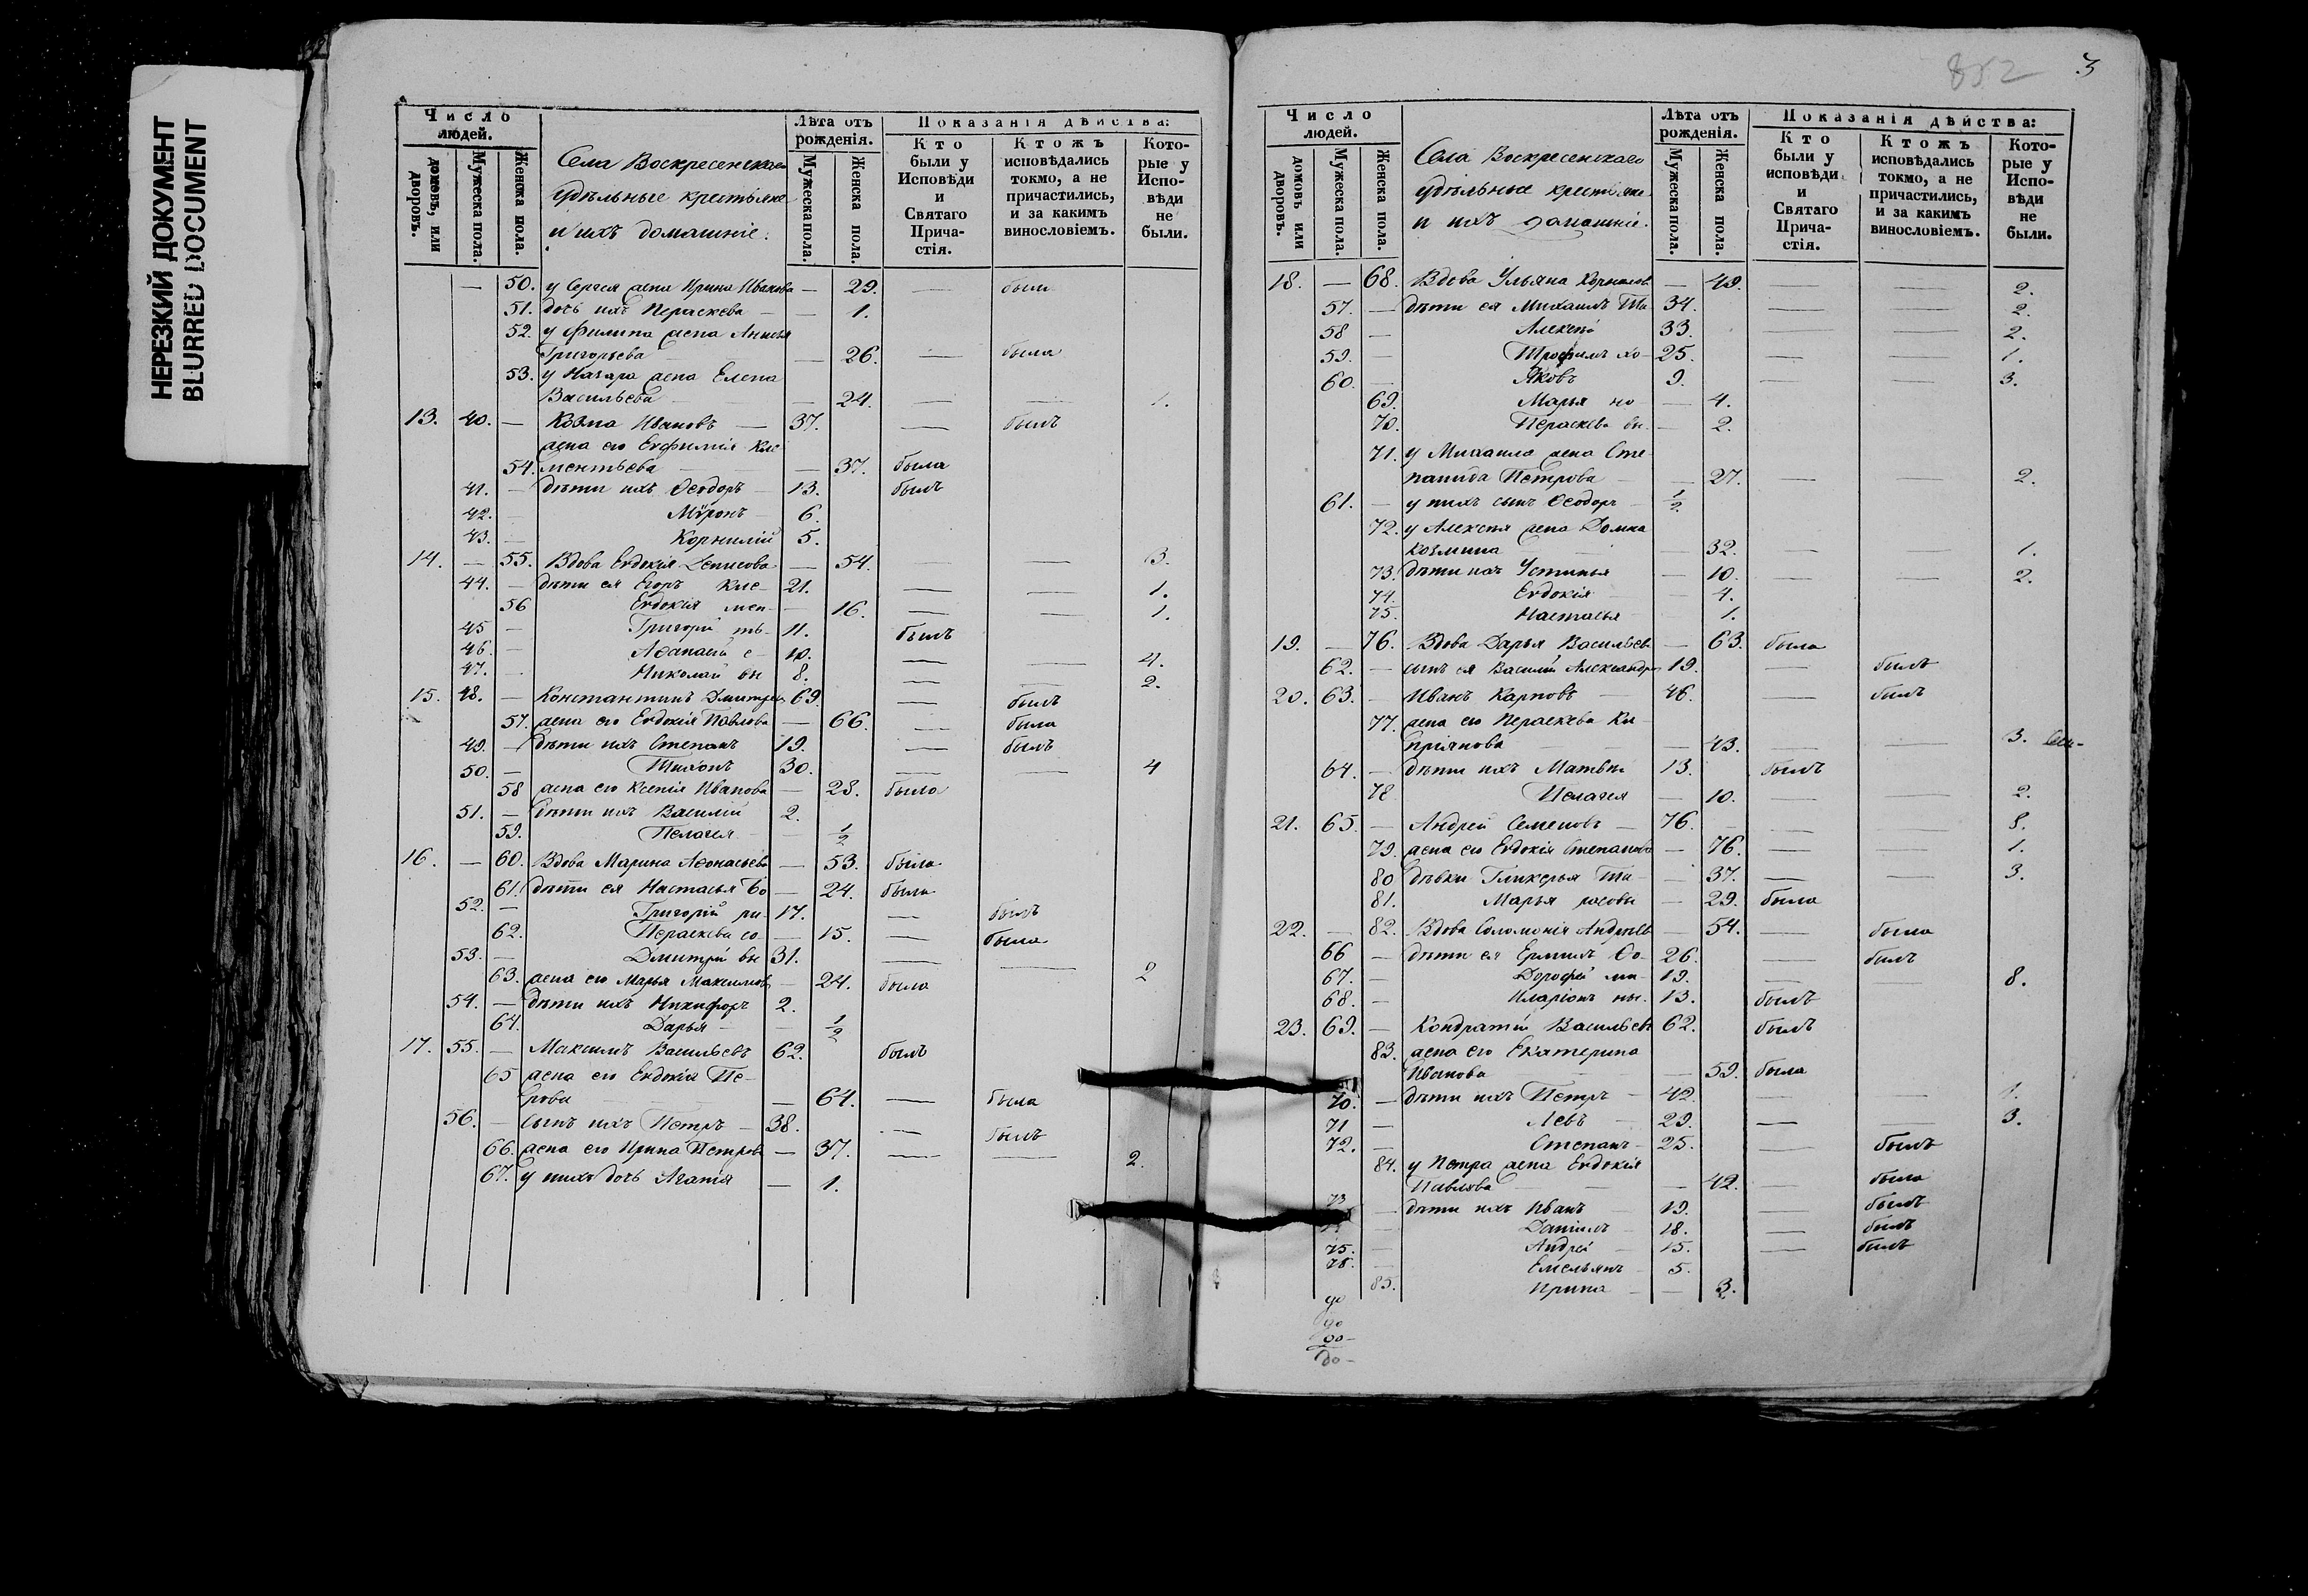 НЕРЕЗКИЙ ДОКУМЕНТ
BLURRED DOCUMENT
Число людей.
домовъ, или дворовъ.
Мужеска пола.
Женска пола.
Села Воскресенскаго
удѣльные крестьяне
и ихъ домашніе.
Лѣта отъ рожденія.
Мужеска пола.
Женска пола.
Показанія дѣйства:
Кто были у Исповѣди и Святаго Причастія.
Ктожъ исповѣдались токмо, а не причастились, и за какимъ винословіемъ.
Которые у Исповѣди не были.
— 50. у Сергея жена Ирина Иванова — 29. — была
51. дочь ихъ Пераскева — — 1.
52. у Филипа жена Анисья
Григорьева — 26. — была
53. у Назара жена Елена
Васильева — 24. — — 1.
13. 40. — Козма Ивановъ — 37. — былъ
жена его Евфимія Кле-
54. ментьева — 37. была
41. — дѣти ихъ Ѳеодоръ — 13. былъ
42. — Мѵронъ — 6.
43. — Корнилій 5.
14. — 55. Вдова Евдокія Денисова — 54. — — 3.
44. — дѣти ея Егоръ Кле- 21. — — 1.
56 Евдокія мен- — 16. — — 1.
45 — Григорій ть- 11. былъ
46. — Аѳанасій е- 10. — — 4.
47. — Николай вы 8. — — 2.
15. 48. — Константинъ Дмитріевъ 69. — былъ
57. жена его Евдокія Павлова — 66. — была
49. — дѣти ихъ Степанъ 19. — былъ
50. — Тихонъ 30. — — 4
58 жена его Ксенія Иванова — 28. была
51. — дѣти ихъ Василій 2.
59. Пелагея — — 1/2
16. — 60. Вдова Марина Аѳонасьева — 53. была
61. дѣти ея Настасья Бо — 24. была
52. — Григорій ри- 17. — былъ
62. Пераскева со — 15. — была
53. — Дмитрій вы 31. — — 2
63. жена его Марья Максимова — 24. была
54. — дѣти ихъ Никифоръ 2.
64. Дарья — — 1/2
17. 55. — Максимъ Васильевъ 62. былъ
65 жена его Евдокія Пе-
трова — 64. — была
56. — сынъ ихъ Петръ — 38. — былъ
66. жена его Ирина Петрова — 37. — — 2.
67. у нихъ дочь Агафія — 1.
852
3
Число людей.
домовъ или дворовъ.
Мужеска пола.
Женска пола.
Села Воскресенскаго
удѣльные крестьяне
и ихъ домашніе.
Лѣта отъ рожденія.
Мужеска пола.
Женска пола.
Показанія дѣйства:
Кто были у исповѣди и Святаго Причастія.
Ктожъ исповѣдались токмо, а не причастились, и за какимъ винословіемъ.
Которые у Исповѣди не были.
18. — 68. Вдова Ульяна Корнилов — 49. — — 2.
57. — дѣти ея Михаилъ Ти 34. — — 2.
58 — Алексѣй 33. — — 2.
59. — Трофимъ хо- 25. — — 1.
60. — Яковъ 9. — — 3.
69. Марья но — 4.
70. Пераскева вы- — 2.
71. у Михаила жена Сте-
панида Петрова — 27. — — 2.
61. — у нихъ сынъ Ѳеодоръ — 1/2
72. у Алексея жена Домна
Козмина — 32. — — 1.
73. дѣти ихъ Устинья — 10. — — 2.
74. Евдокія — 4.
75. Настасья 1.
19. — 76. Вдова Дарья Васильева — 63. была
62. — сынъ ея Василій Александр 19. — былъ
20. 63. — Иванъ Карповъ — 46. — былъ
77. жена его Пераскева Ки-
пріянова — 43. — — 3.
64. — дѣти ихъ Матвѣй 13. былъ
78 Пелагея — 10. — — 2.
21. 65. — Андрей Семеновъ — 76. — — 8.
79. жена его Евдокія Степанова — 76. — — 1.
80 дѣвки Гликерья Ти- — 37. — — 3.
81. Марья — 29. была
22. — 82. Вдова Соломонія Андреев — 54. — была
66 — дѣти ея Ермилъ Ѳо- 26. — былъ
67. — Дорофей ми- 19. — — 8.
68. — Иларіонъ ны. 13. былъ
23. 69. — Кондратій Васильевъ 62. былъ
83. жена его Екатерина
Иванова — 59. была
70. — дѣти ихъ Петръ — 42. — — 1.
71 — Левъ — 29. — — 3.
72. — Степанъ — 25. — былъ
84. у Петра жена Евдокія
Павлова — 42. — была
73 — дѣти ихъ Иванъ — 19. — былъ
— Даніилъ — 18. — былъ
75. — Андрей — 15. — былъ
76. — Емельянъ — 5.
85. Ирина — — 3.